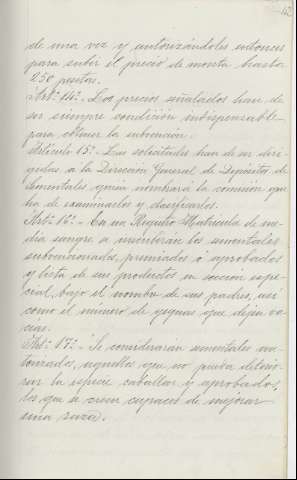 de una vez y autorizándoles entonces
para subir el precio de monta hasta
250 pesetas.
Art.º 14º.- Los precios señalados han de
ser siempre condición indispensable
para obtener la subvención.
Artículo 15º.- Las solicitudes han de ser diri-
gidas a la Dirección General de Depósitos de
Sementales quien nombrará la comisión que
ha de examinarlos y clasificarlos.
Art.º 16º.- En un Registro-Matrícula de me-
dia sangre se inscribirán los sementales
subvencionados, premiados ó aprobados
y lista de sus productos en sección espe-
cial, bajo el nombre de sus padres, así
como el número de yeguas que dejan va-
cias.
Art.º 17º.- Se considerarán sementales au-
torizados, aquellos que no pueda deterio-
rar la especie caballar y aprobados,
los que se crean capaces de mejorar
una raza.